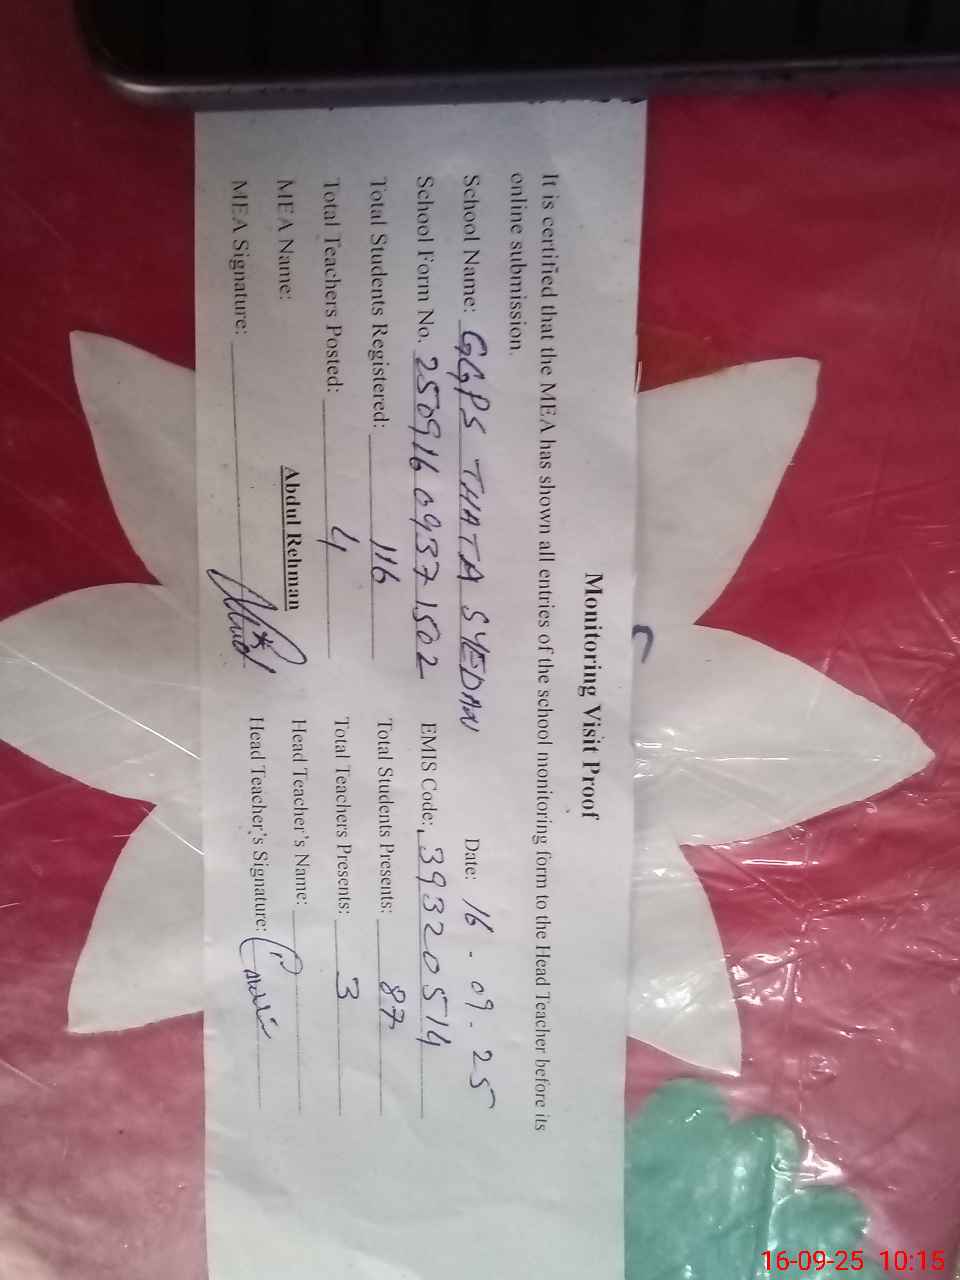 Monitoring Visit Proof
It is certified that the MEA has shown all entries of the school monitoring form to the Head Teacher before its
online submission.
School Name: GGPS THATA SYEDAN Date: 16-09-25
School Form No. 250916 0937 1502 EMIS Code: 39320514
Total Students Registered: 116 Total Students Presents: 87
Total Teachers Posted: 4 Total Teachers Presents: 3
MEA Name: Abdul Rehman Head Teacher's Name:
MEA Signature: Head Teacher's Signature:
16-09-25 10:15